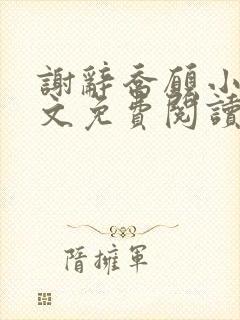 謝辭喬願小
文免費閱讀
隋擁軍